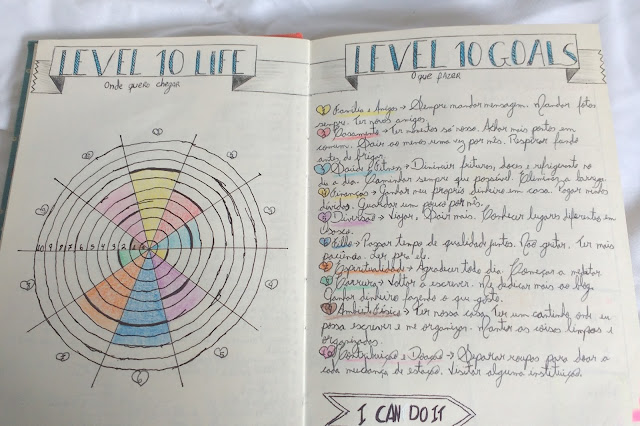 LEVEL 10 LIFE
Onde quero chegar
10 9 8 7 6 5 4 3 2 1
LEVEL 10 GOALS
O que fazer
1 Família e Amigos → Sempre mandar mensagem. Mandar fotos
sempre. Ter novos amigos.
2 Casamento → Ter momentos só nosso. Achar mais pontos em
comum. Sair ao menos uma vez por mês. Respirar fundo
antes de brigar.
3 Saúde e Fitness → Diminuir frituras, doces e refrigerante no
dia a dia. Caminhar sempre que possível. Eliminar a barriga.
4 Finanças → Ganhar meu próprio dinheiro em casa. Pagar minhas
dívidas. Guardar um pouco por mês.
5 Diversão → Viajar. Sair mais. Conhecer lugares diferentes em
6 Filho → Passar tempo de qualidade juntos. Não gritar. Ter mais
paciência. Ler pra ele.
7 Espiritualidade → Agradecer todo dia. Começar a meditar
8 Carreira → Voltar a escrever. Me dedicar mais ao blog.
Ganhar dinheiro fazendo o que gosto.
9 Ambiente Físico → Ter nossa casa. Ter um cantinho onde eu
possa escrever e me organizar. Manter as coisas limpas e
organizadas.
10 Contribuição e Doação → Separar roupas para doar a
cada mudança de estação. Visitar alguma instituição.
I CAN DO IT